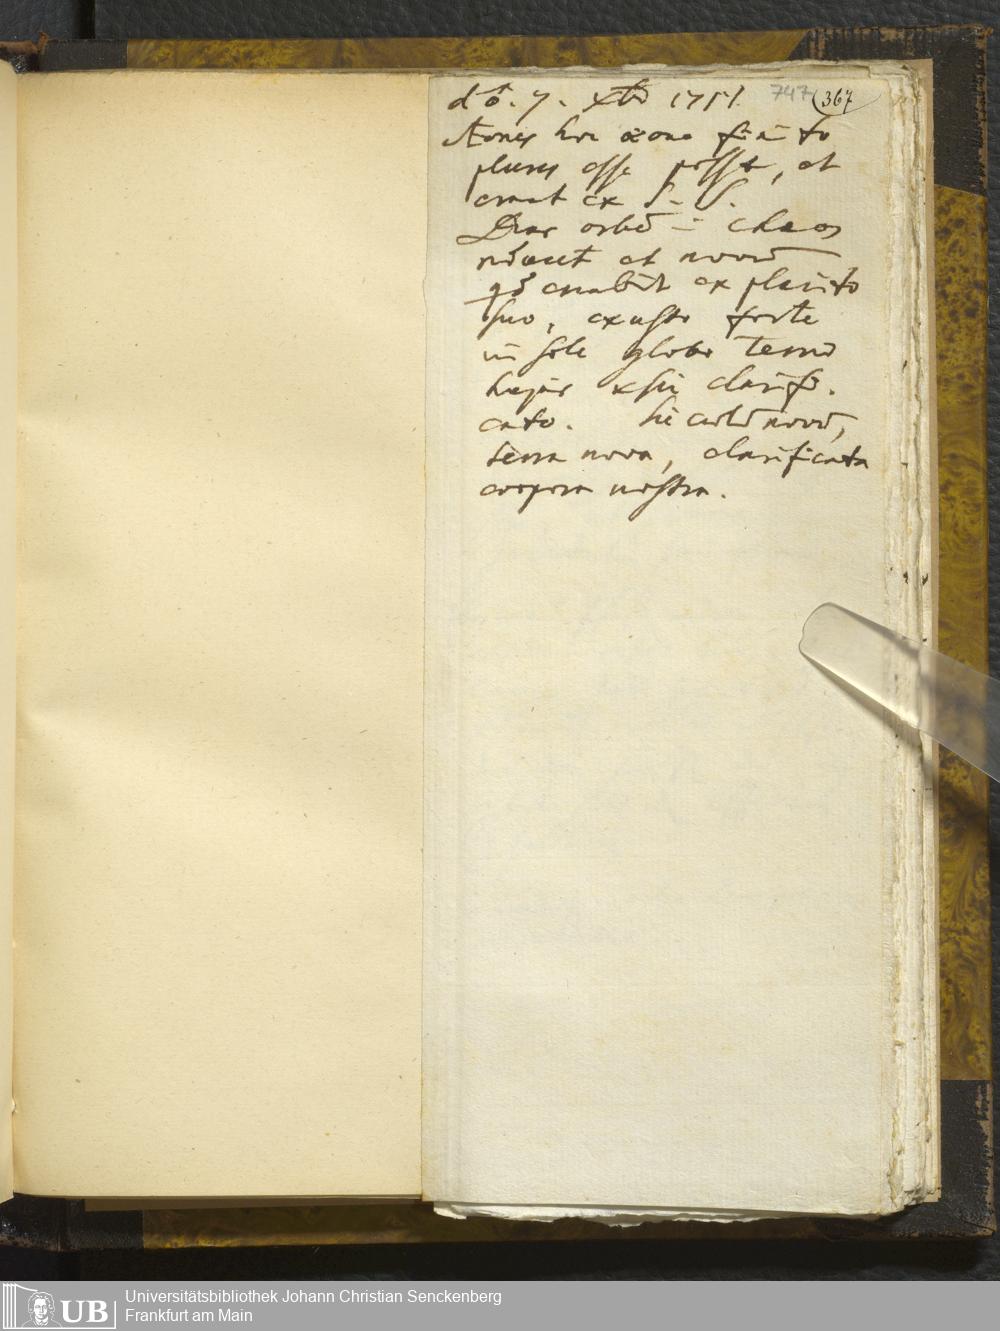 d. ô. 7. Xbr 1751. 747 (367)
Aeones hoc aeone finito
plures esse possent, et
erunt ex S. S.
Deus orbem in chaos
et novum
ex placito
suo, exusto forte
in sole globo terreno
hujus clarifi-
cato. Sic coelum novum,
terra nova, clarificata
corpora nostra.
UB Universitätsbibliothek Johann Christian Senckenberg
Frankfurt am Main